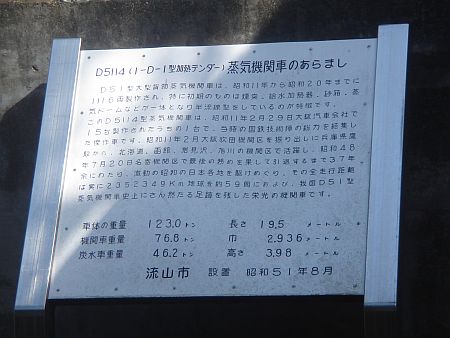 D5114(1-D-1型加熱テンダー)蒸気機関車のあらまし
D51型大型貨物蒸気機関車は、昭和11年から昭和20年までに
1116両製作され、特に初期のものは煙突、給水加熱器、砂箱、蒸
気ドームなどが一体となり半流線型をしているのが特徴です。
このD5114型蒸気機関車は、昭和11年2月29日大阪汽車会社で
15台製作されたうちの1台で、当時の国鉄技術陣の総力を結集し
た傑作車です。昭和11年2月大阪吹田機関区を振り出しに兵庫県鷹
取から、北海道、函館、岩見沢、旭川の機関区で活躍し、昭和48
年7月20日名寄機関区で最後の務めを果して引退するまで37年
余にわたり、激動の昭和の日本各地を駆けめぐり、その全走行距離
は実に2352349Km地球を約59周におよび、我国D51型
蒸気機関車史上にさん然たる足跡を残した栄光の機関車です。
車体の重量 123.0トン 長さ 19.5 メートル
機関車重量 76.8トン 巾 2.936メートル
炭水車重量 46.2トン 高さ 3.98 メートル
流山市 設置 昭和51年8月